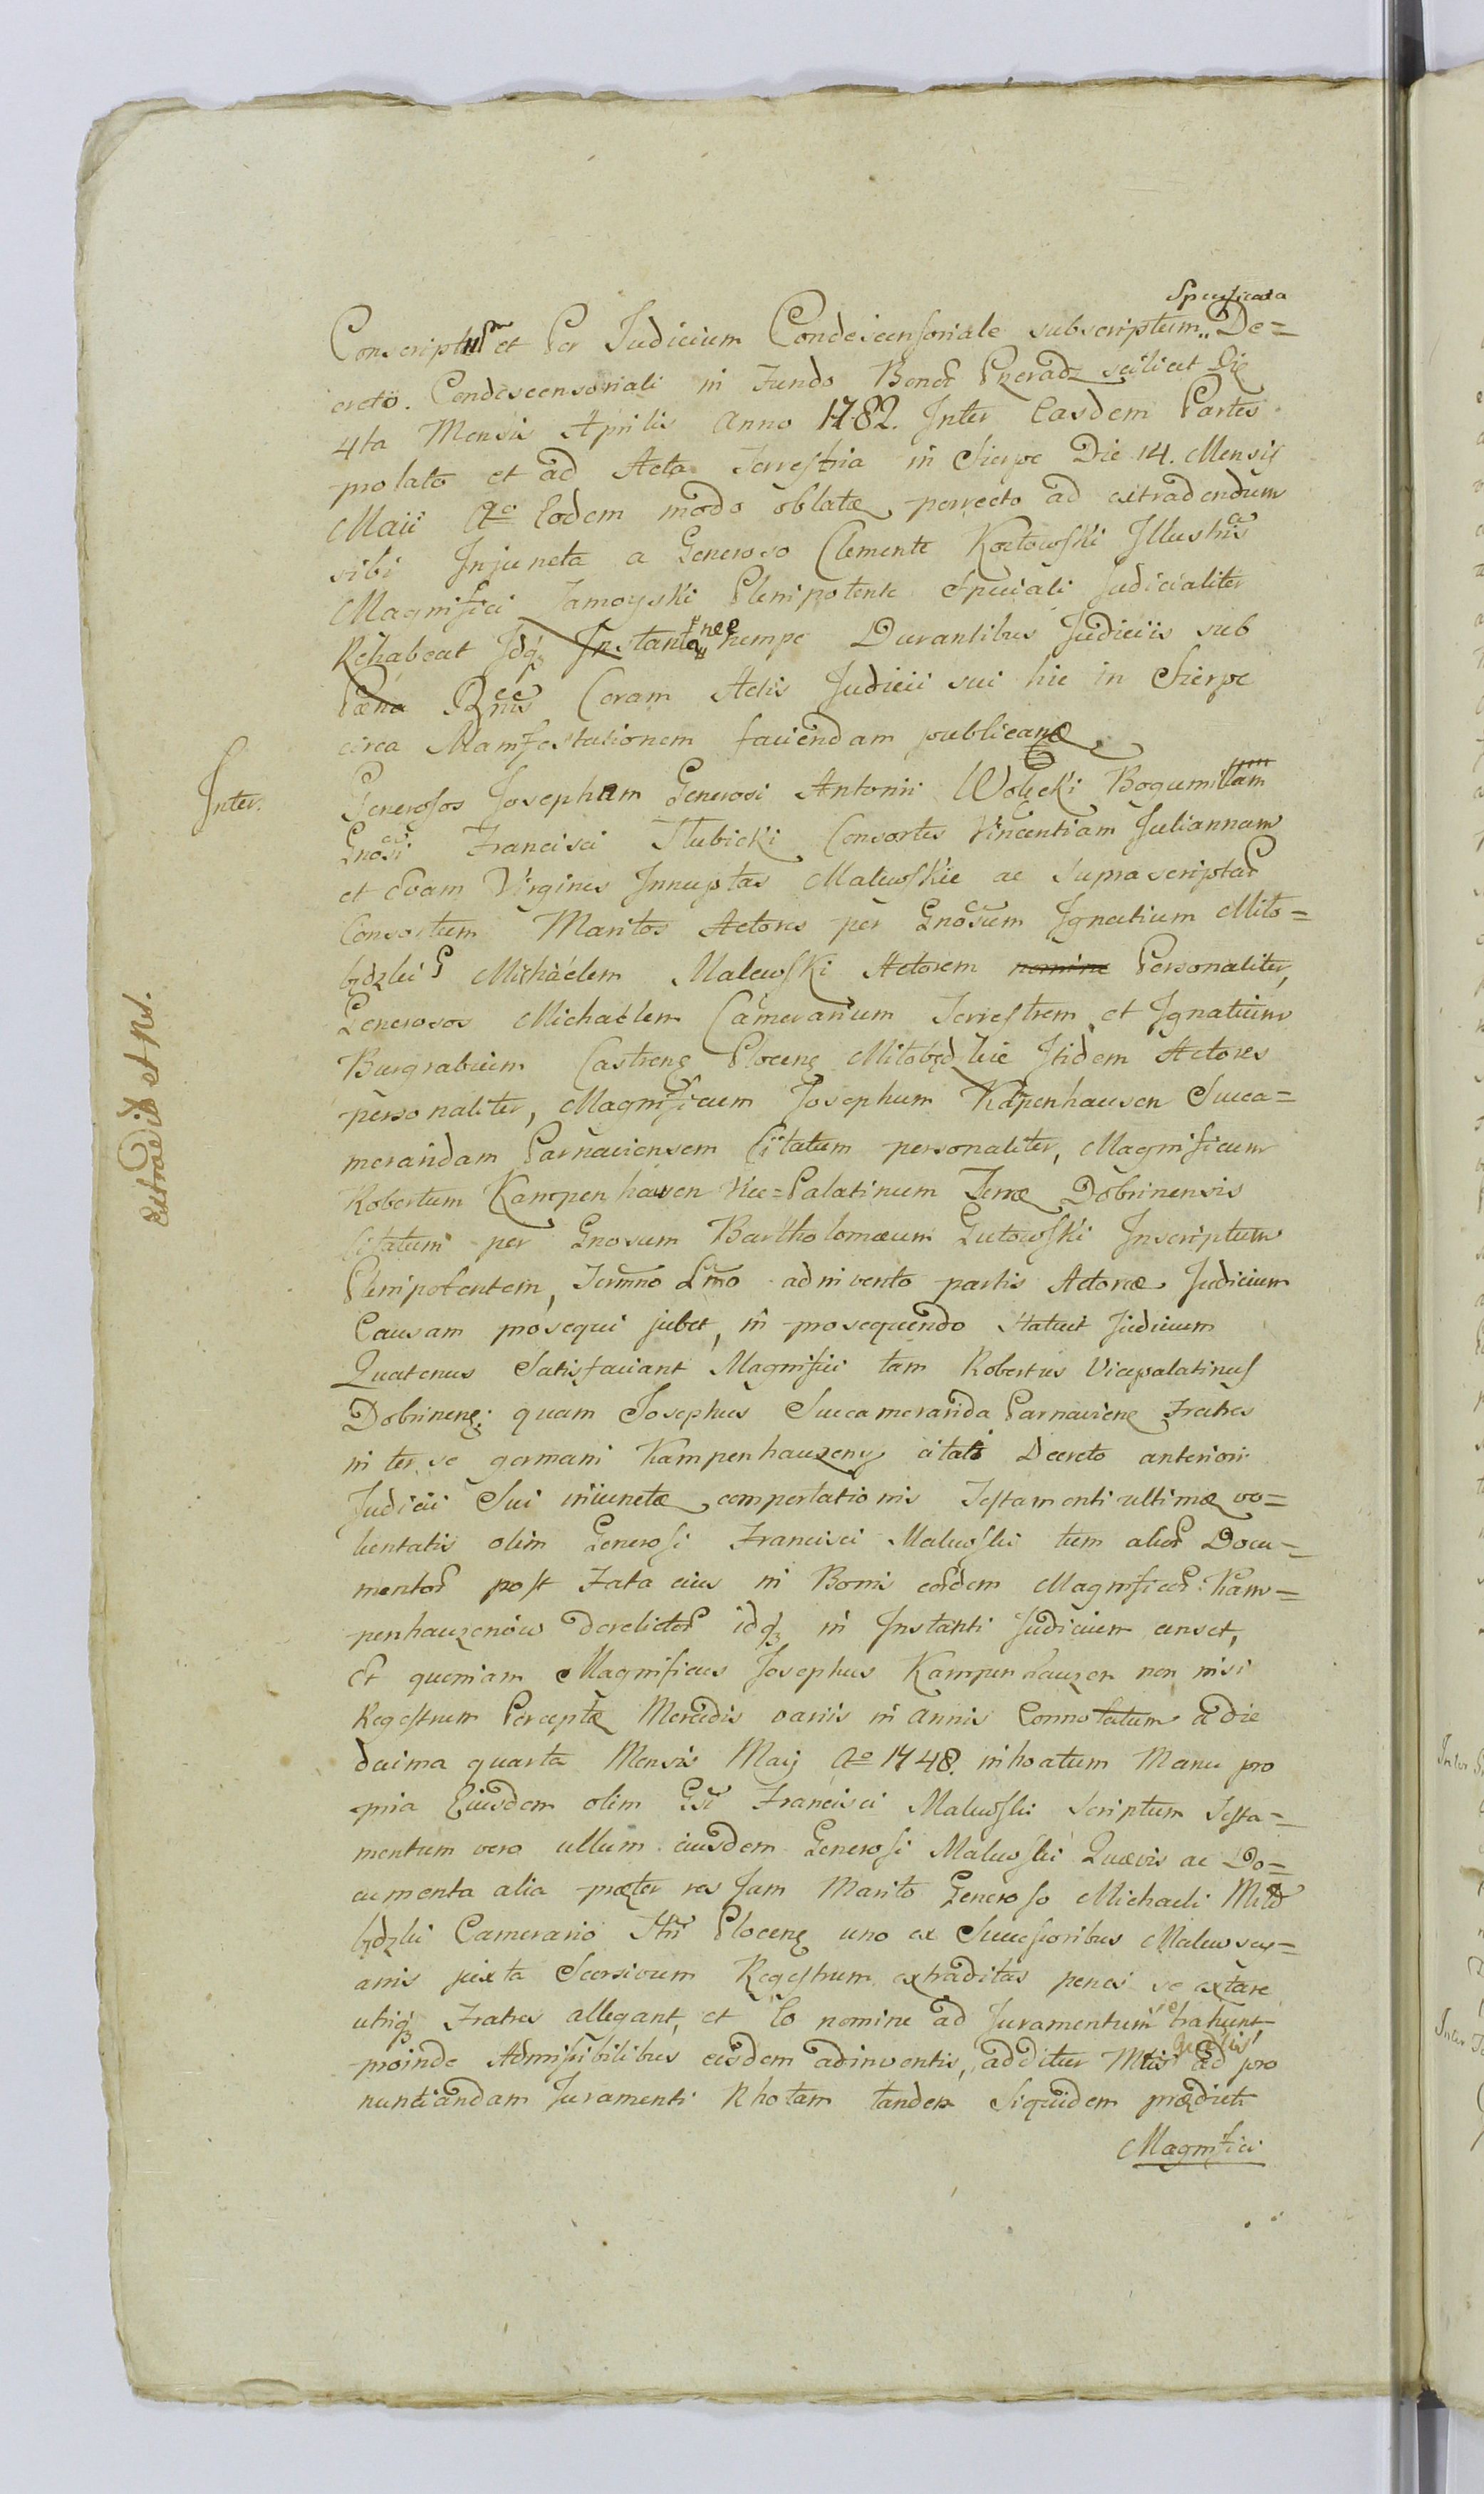 Specificata
Conscriptum et Per Judicium Condescensoriale subscriptum,, De=
creto. Condescensoriali in Fundo Bonor scilicet Die
4ta Mensis Aprilis Anno 1782. Inter Easdem Partes
prolato et ad Acta Terrestria in Sierpc Die 14. Mensis
Maii Ao Eodem modo oblatæ porrecto ad extradendum
sibi Injuncta a Generoso Clemente Illustris
Magnifici Zamoyski Plenipotente Speciali Judicialiter
Rehabeat Idq, nempe Durantibus Judiciis sub
Pæna Coram Actis Judicii sui hic in Sierpc
circa Manifestationem faciendam
Inter.
Generosos Josepham Generosi Antonii Wolicki Bogumillam
Gnosi Francisci Tłubicki Consortes Vincentiam Juliannam
et Evam Virgines Innuptas Malewskie ac Suprascriptar
Consortum Maritos Actores per Gnosum Ignatium Miło=
będzki Michäelem Malewski Actorem nomine Personaliter,
Generosos Michaelem Camerarium Terrestrem et Ignatium
Burgrabium Castrens Plocens Miłobędzkie Itidem Actores
personaliter, Magnificum Josephum Kapenhausen Succa=
merandam Parnaviensem Citatum personaliter, Magnificum
Robertum Kampenhausen Vice=Palatinum Terræ Dobrinensis
Citatum per Gnosum Bartholomæum Gutowski Inscriptum
Plenipotentem, Termno adinvento partis Actoreæ Judicium
Causam prosequi jubet, in prosequendo Statuit Judicium
Quatenus Satisfaciant Magnifici tam Robertus Vicepalatinus
Dobrinens: quam Josephus Succameranda Parnaviens Fratres
inter se germani Kampenhauzeny citati Decreto anteriori
Judicii Sui iniunctæ comportationis Testamenti ultimæ vo=
luntatis olim Generosi Francisci Malewski tum alior Docu=
mentor post Fata eius in Bonis eordem Magnificor: Kam=
penhauzenów derelictor idq, in Instanti Judicium censet,
Et quoniam Magnificus Josephus Kampenhauzen non nisi
Regestrum Perceptæ Mercedis variis in Annis Connotatum a die
decima quarta Mensis Maij Ao 1748. inhoatum Manu pro
pria Eiusdem olim Gsi Francisci Malewski Scriptum Testa=
mentum vero ullum eiusdem Generosi Malewski Quævis ac Do=
cumenta alia præter res Jam Marito Generoso Michaeli Miło
będzki Camerario Plocens uno ex Successoribus Malewsci=
anis juxta Seorsivum Regestrum extraditas penes se extare
utriq, Fratres allegant, et Eo nomine ad Juramentum trahunt
proinde Admissibilibus eisdem adinventis, additur ad pro
nuntiandam Juramenti Rhotam tandem Siquidem prædicti
Magnifici
Extradit et Ns.